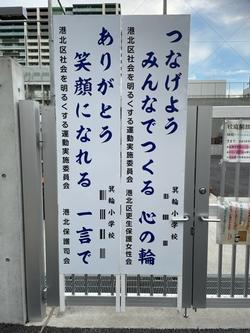 つなげよう
みんなでつくる 心の輪
箕輪小学校
港北区更生保護女性会
港北区社会を明るくする運動実施委員会
ありがとう
笑顔になれる 一言で
箕輪小学校
港北保護司会
港北区社会を明るくする運動実施委員会